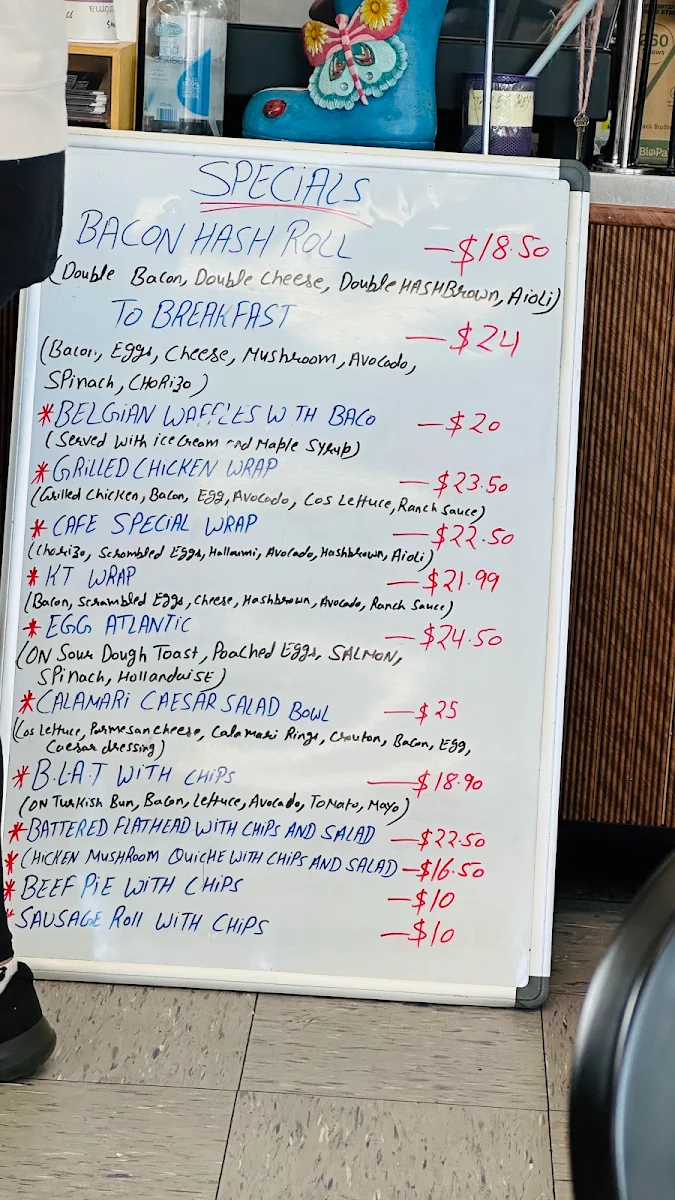 SPECIALS
BACON HASH ROLL —$18.50
(Double Bacon, Double Cheese, Double HASHBrown, Aioli)
TO BREAKFAST —$24
(Bacon, Eggs, Cheese, Mushroom, Avocado,
Spinach, CHORIZO)
*BELGIAN WAFFLES W TH BACO —$20
(Served with ice Cream and Maple Syrup)
*GRILLED CHICKEN WRAP —$23.50
(Grilled Chicken, Bacon, Egg, Avocado, Cos Lettuce, Ranch Sauce)
*CAFE SPECIAL WRAP —$22.50
(Chorizo, Scrambled Eggs, Halloumi, Avocado, Hashbrown, Aioli)
*KT WRAP —$21.99
(Bacon, Scrambled Eggs, Cheese, Hashbrown, Avocado, Ranch Sauce)
*EGG ATLANTIC —$24.50
(ON Sour Dough Toast, Poached Eggs, SALMON,
Spinach, HollandaiSE)
*CALAMARI CAESAR SALAD BOWL —$25
(Cos Lettuce, Parmesan cheese, Calamari Rings, Crouton, Bacon, Egg,
Caesar dressing)
*B.L.A.T WITH CHIPS —$18.90
(ON Turkish Bun, Bacon, Lettuce, Avocado, Tomato, Mayo)
*BATTERED FLATHEAD WITH CHIPS AND SALAD —$22.50
*CHICKEN MUSHROOM QUICHE WITH CHIPS AND SALAD —$16.50
*BEEF PIE WITH CHIPS —$10
*SAUSAGE Roll WITH CHIPS —$10
BioPa